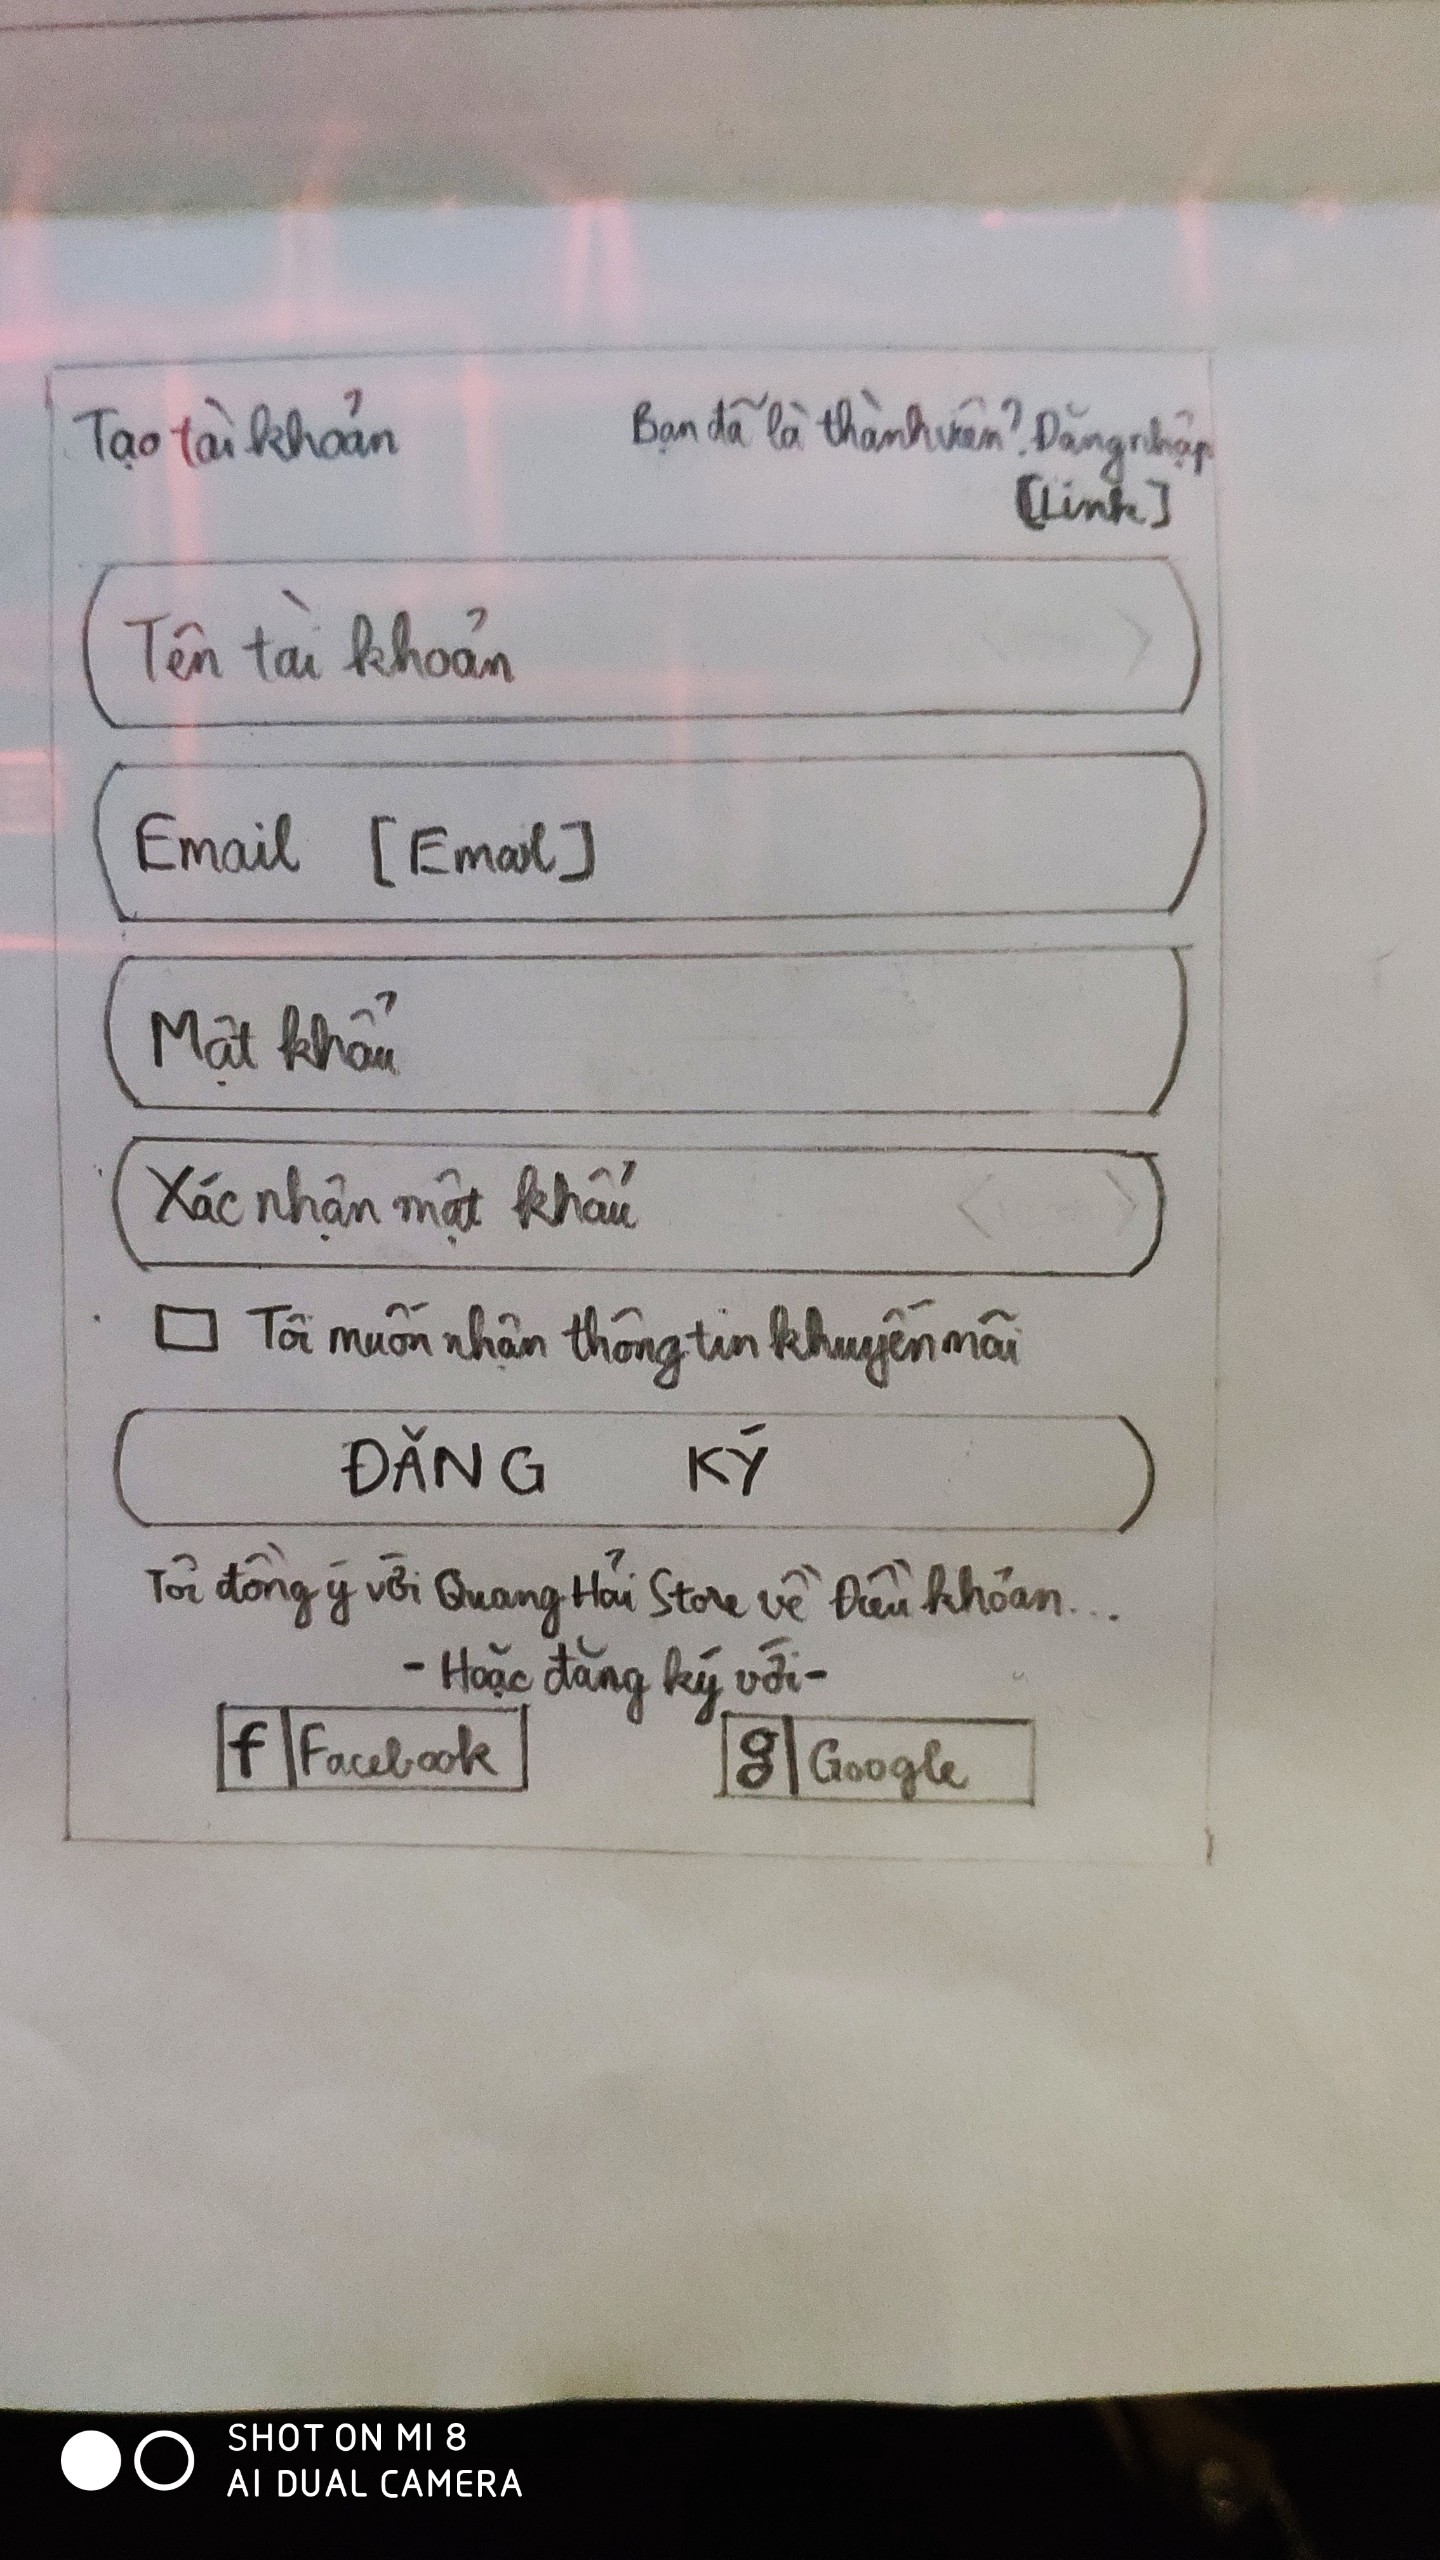 Tạo tài khoản
Bạn đã là thành viên? Đăng nhập
[Link]
Tên tài khoản
Email [Email]
Mật khẩu
Xác nhận mật khẩu
Tôi muốn nhận thông tin khuyến mãi
ĐĂNG KÝ
Tôi đồng ý với Quang Hải Store về Điều khỏan...
- Hoặc đăng ký với -
f Facebook
g Google
SHOT ON MI 8
AI DUAL CAMERA